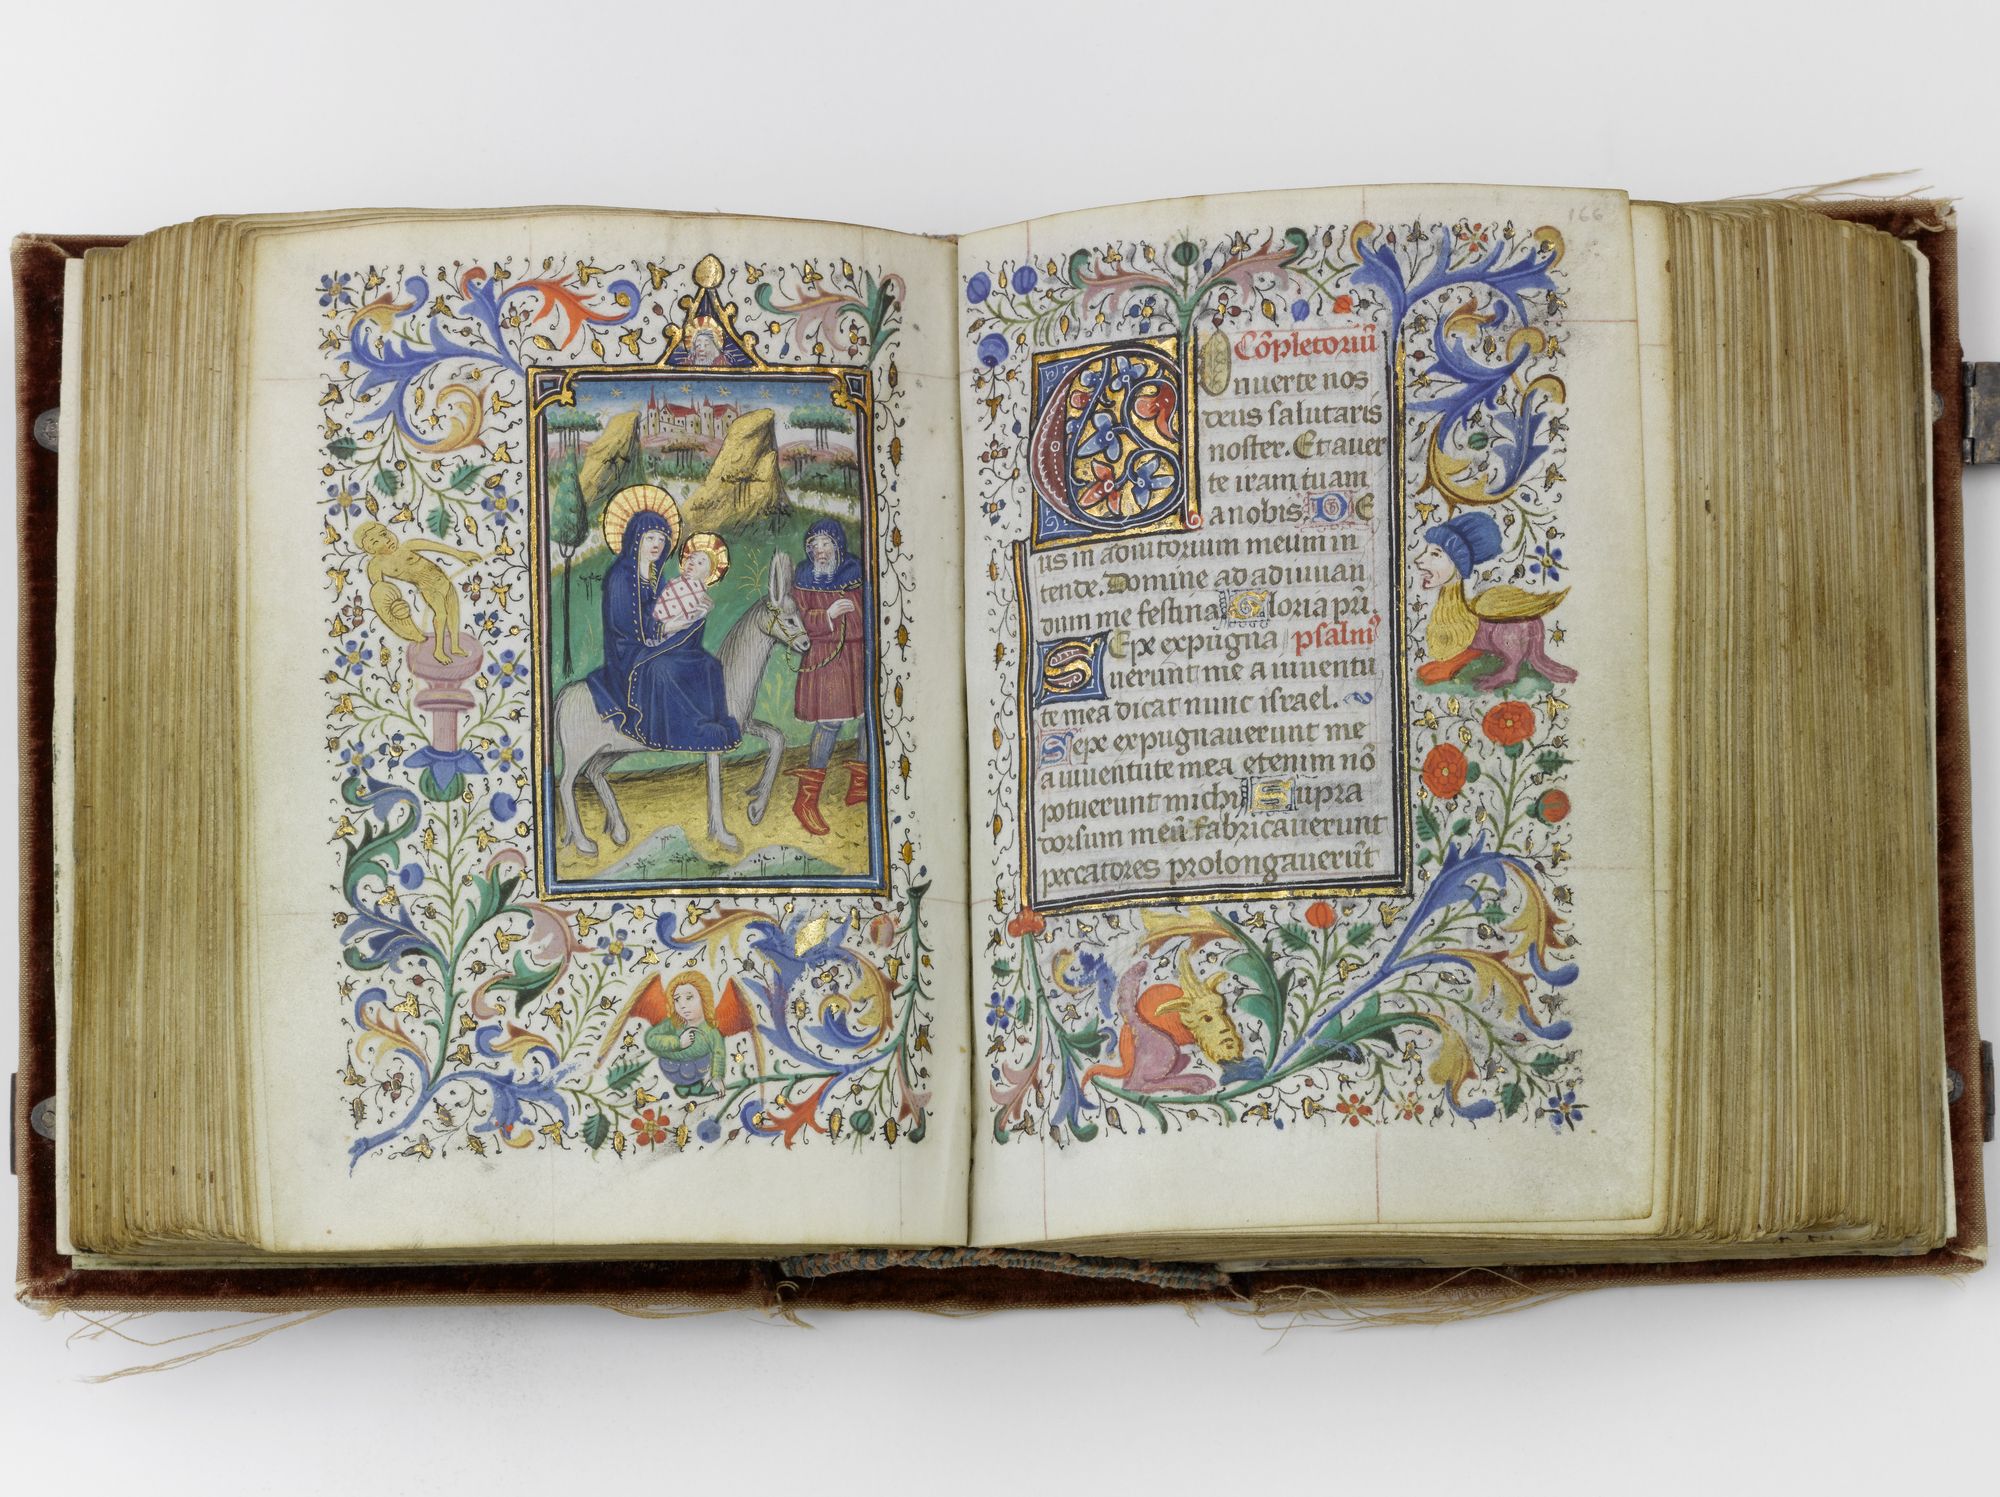 166
Cōpletoriū
Conuerte nos
deus salutaris
noster. Et auer
te iram tuam
a nobis. DE
us in adiutorium meum in
tende. Domine ad adiuuan
dum me festina Gloria pr̄i.
Sepe expugna psalmꝰ
uerunt me a iuuentu
te mea dicat nunc israel.
Sepe expugnauerunt me
a iuuentute mea etenim nō
potuerunt michi Supra
dorsum meū fabricauerunt
peccatores prolongauerūt